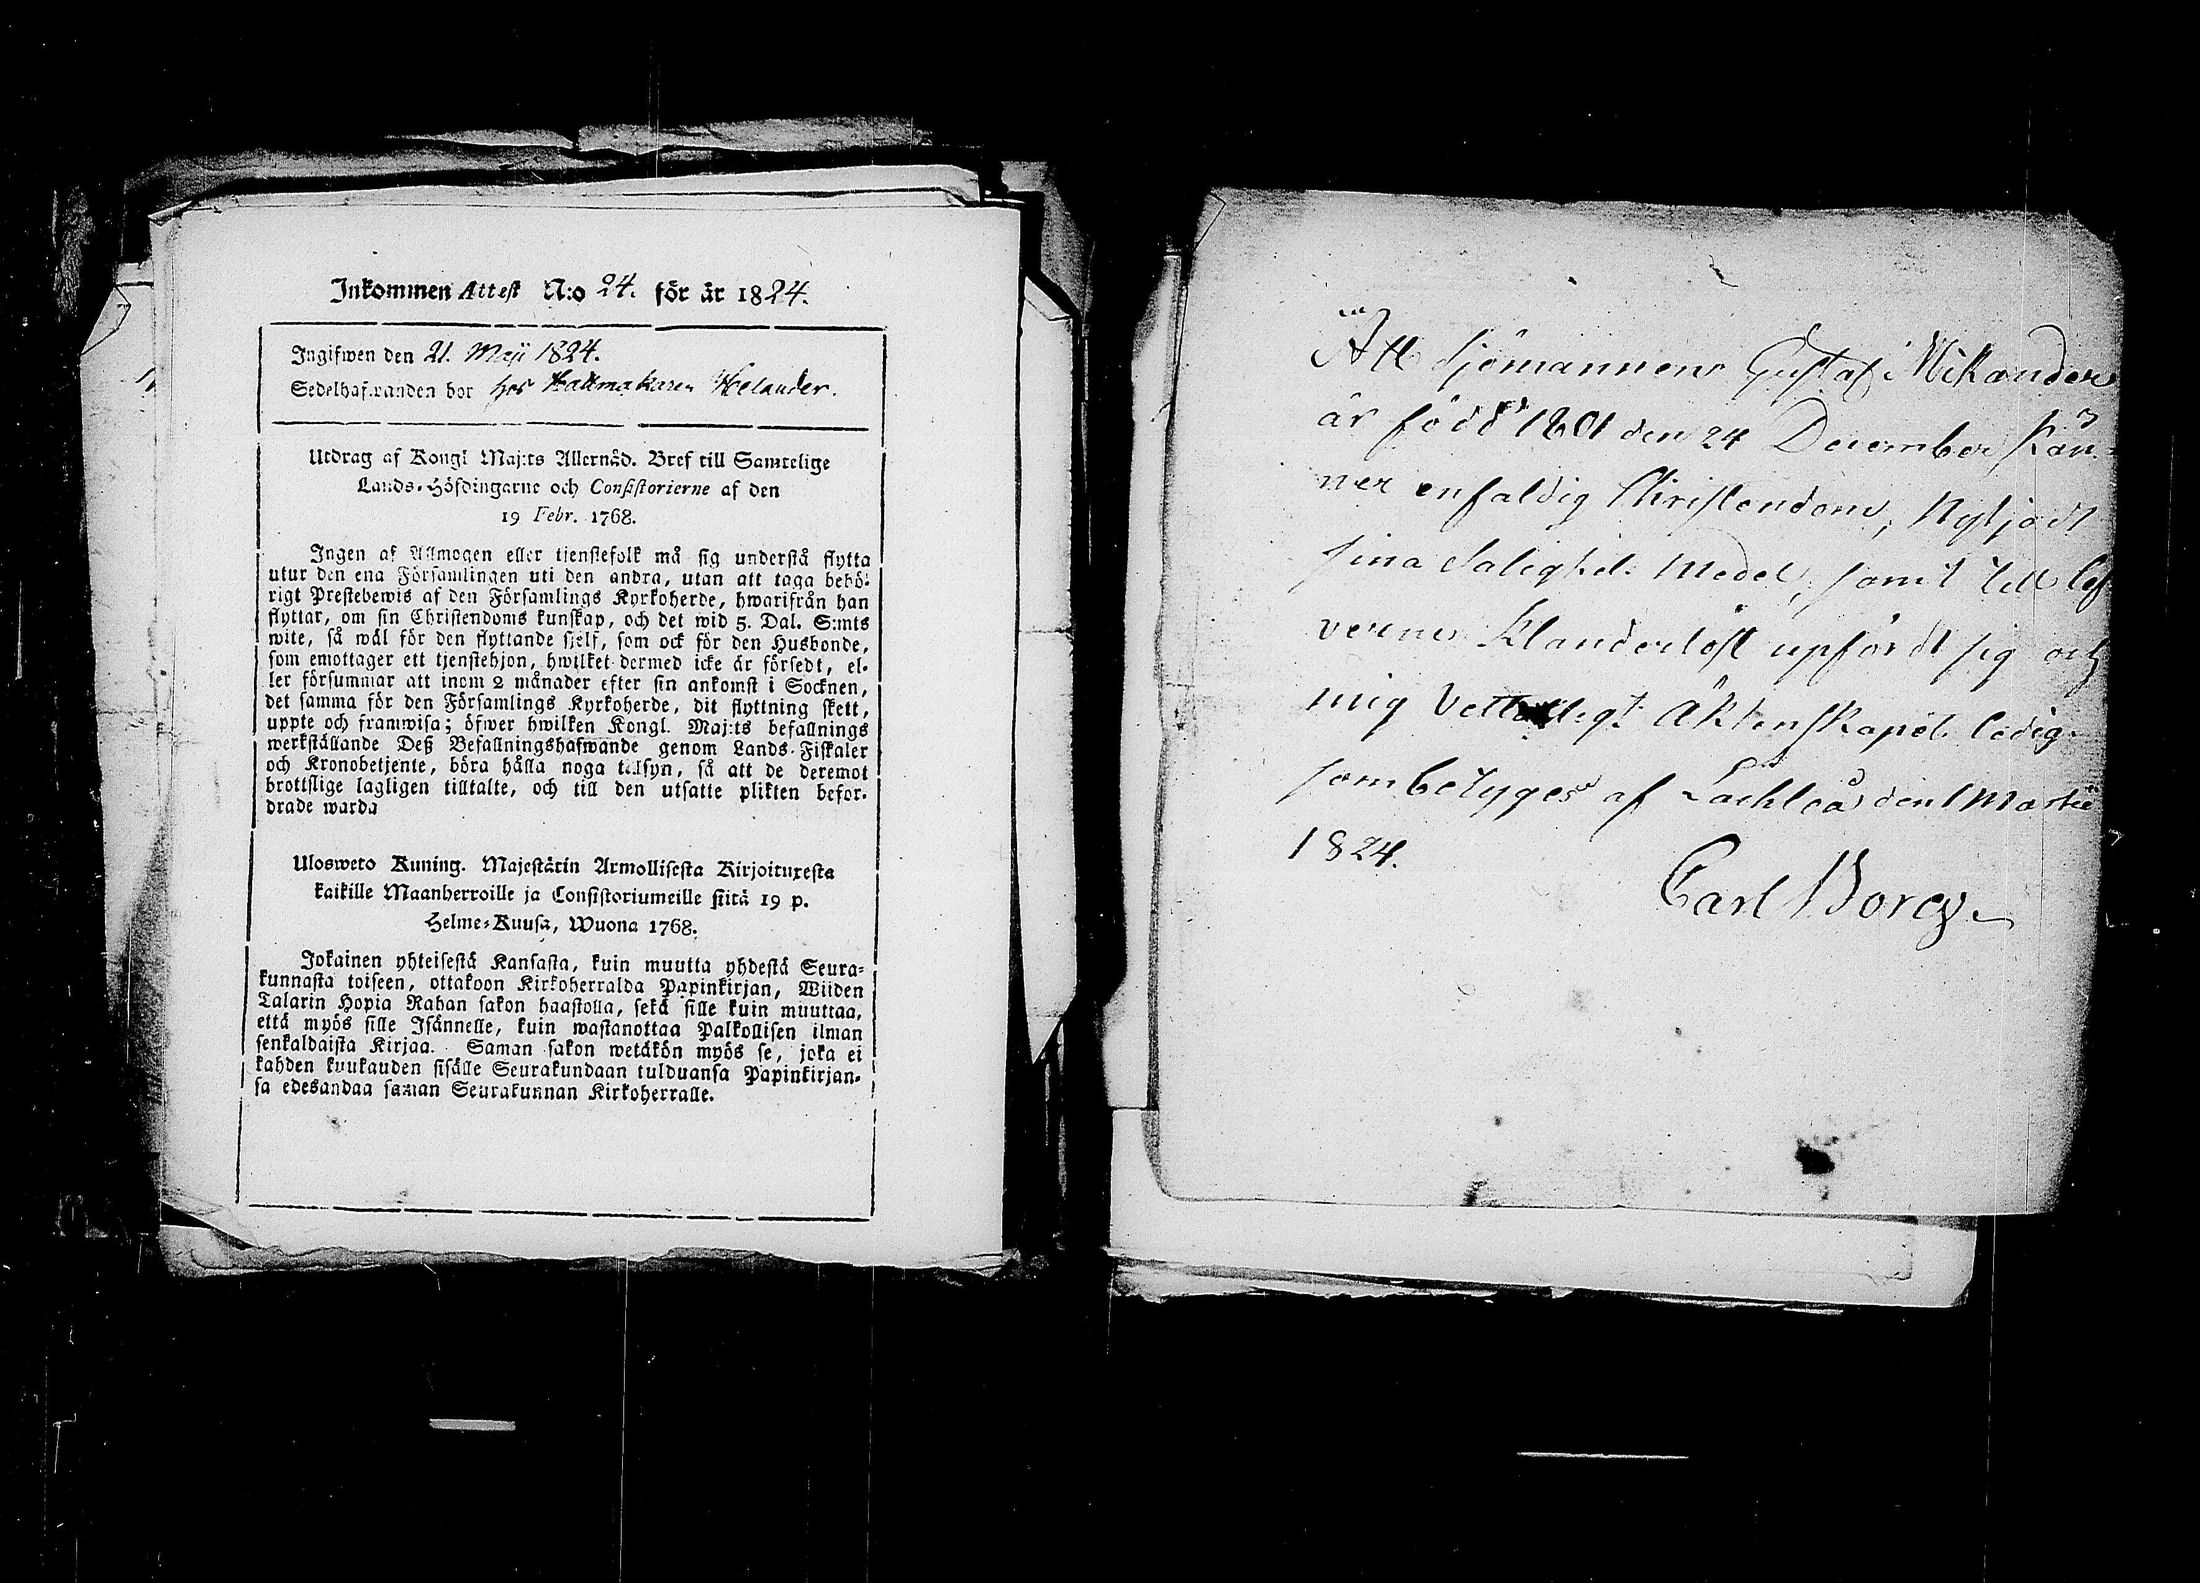 Inkommen Attest N:o 24. för år 1824.
Ingifwen den 21. Maji 1824.
Sedelhafwanden bor hos Hattmakaren Helander.
Utdrag af Kongl Maj:ts Allernåd. Bref till Samtelige
Lands-Höfdingarne och Consistorierne af den
19 Febr. 1768.
Ingen af Allmogen eller tjenstefolk må sig understå flytta
utur den ena Församlingen uti den andra, utan att taga behö-
rigt Prestebewis af den Församlings Kyrkoherde, hwarifrån han
flyttar, om sin Christendoms kunskap, och det wid 5. Dal. S:mts
wite, så wäl för den flyttande sjelf, som ock för den Husbonde,
som emottager ett tjenstehjon, hwilket dermed icke är försedt, el-
ler försummar att inom 2 månader efter sin ankomst i Socknen,
det samma för den Församlings Kyrkoherde, dit flyttning skett,
uppte och framwisa; öfwer hwilken Kongl. Maj:ts befallnings
werkställande Deß Befallningshafwande genom Lands-Fiskaler
och Kronobetjente, böra hålla noga tillsyn, så att de deremot
brottslige lagligen tilltalte, och till den utsatte plikten befor-
drade warda
Ulosweto Kuning. Majestätin Armollisesta Kirjoituxesta
kaikille Maanherroille ja Consistoriumeille siitä 19 p.
Helme-Kuusa, Wuona 1768.
Jokainen yhteisestä Kansasta, kuin muutta yhdestä Seura-
kunnasta toiseen, ottakoon Kirkoherralda Papinkirjan, Wiiden
Talarin Hopia Rahan sakon haastolla, sekä sille kuin muuttaa,
että myös sille Isännelle, kuin wastanottaa Palkollisen ilman
senkaldaista Kirjaa. Saman sakon wetäkön myös se, joka ei
kahden kuukauden sisälle Seurakundaan tulduansa Papinkirjan-
sa edesandaa saman Seurakunnan Kirkoherralle.
Att Sjömannen Gustaf Mikander
är född 1801 den 24 December Kän-
ner enfaldig Christendom, Nytjadt
sina Salighets Medel, samt till lef
verne Klanderlöst upfördt sig och
mig Vetterligt Äktenskapet ledig
som betyges af den 1 Martii
1824.
Carl Borg